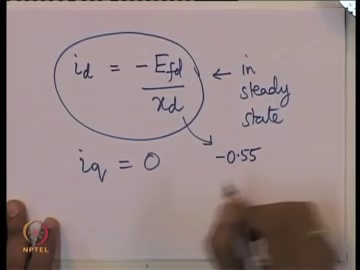 i_d = -E_fd / x_d ← in steady state
i_q = 0
-0.55
NPTEL